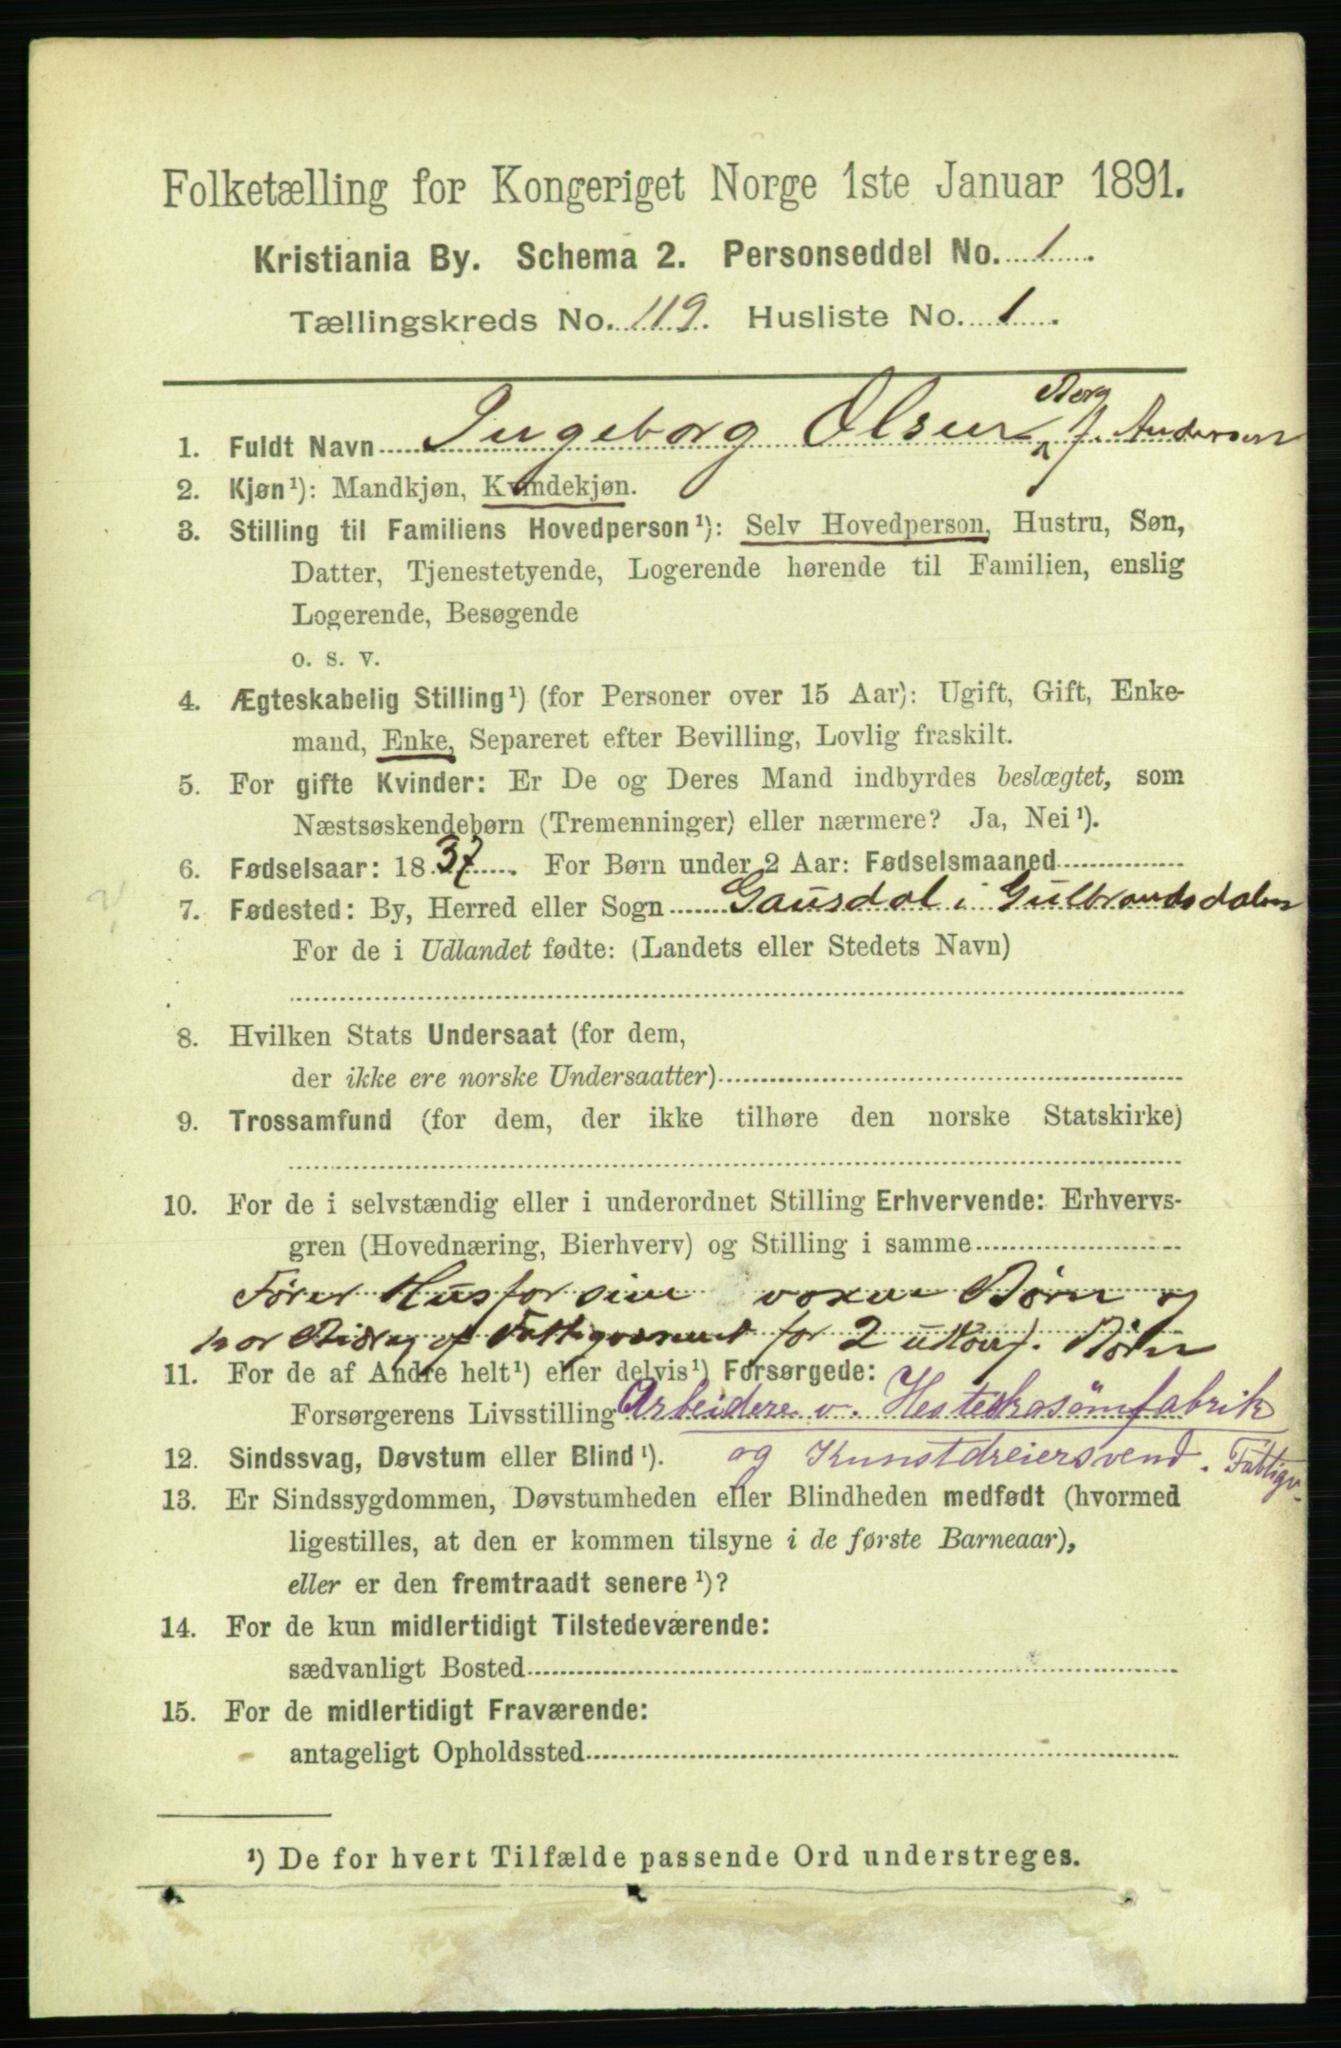 Folketælling for Kongeriget Norge 1ste Januar 1891.
Kristiania By. Schema 2. Personseddel No. 1.
Tællingskreds No. 119. Husliste No. 1.
Berg
1. Fuldt Navn Ingeborg Olsen f. Andersen
2. Kjøn¹): Mandkjøn, Kvindekjøn.
3. Stilling til Familiens Hovedperson¹): Selv Hovedperson, Hustru, Søn,
Datter, Tjenestetyende, Logerende hørende til Familien, enslig
Logerende, Besøgende
o. s. v.
4. Ægteskabelig Stilling¹) (for Personer over 15 Aar): Ugift, Gift, Enke-
mand, Enke, Separeret efter Bevilling, Lovlig fraskilt.
5. For gifte Kvinder: Er De og Deres Mand indbyrdes beslægtet, som
Næstsøskendebørn (Tremenninger) eller nærmere? Ja, Nei¹).
6. Fødselsaar: 1837. For Børn under 2 Aar: Fødselsmaaned
7. Fødested: By, Herred eller Sogn Gausdal i Gulbrandsdalen
For de i Udlandet fødte: (Landets eller Stedets Navn)
8. Hvilken Stats Undersaat (for dem,
der ikke ere norske Undersaatter)
9. Trossamfund (for dem, der ikke tilhøre den norske Statskirke)
10. For de i selvstændig eller i underordnet Stilling Erhvervende: Erhvervs-
gren (Hovednæring, Bierhverv) og Stilling i samme
Fører Hus for sine voxne Børn og
har Bidrag af Fattigvæsenet for 2 ukonf. Børn
11. For de af Andre helt¹) eller delvis¹) Forsørgede:
Forsørgerens Livsstilling Arbeidere v. Hesteskosömfabrik
12. Sindssvag, Døvstum eller Blind¹). og Kunstdreiersvend. Fattigv.
13. Er Sindssygdommen, Døvstumheden eller Blindheden medfødt (hvormed
ligestilles, at den er kommen tilsyne i de første Barneaar),
eller er den fremtraadt senere¹)?
14. For de kun midlertidigt Tilstedeværende:
sædvanligt Bosted
15. For de midlertidigt Fraværende:
antageligt Opholdssted
¹) De for hvert Tilfælde passende Ord understreges.